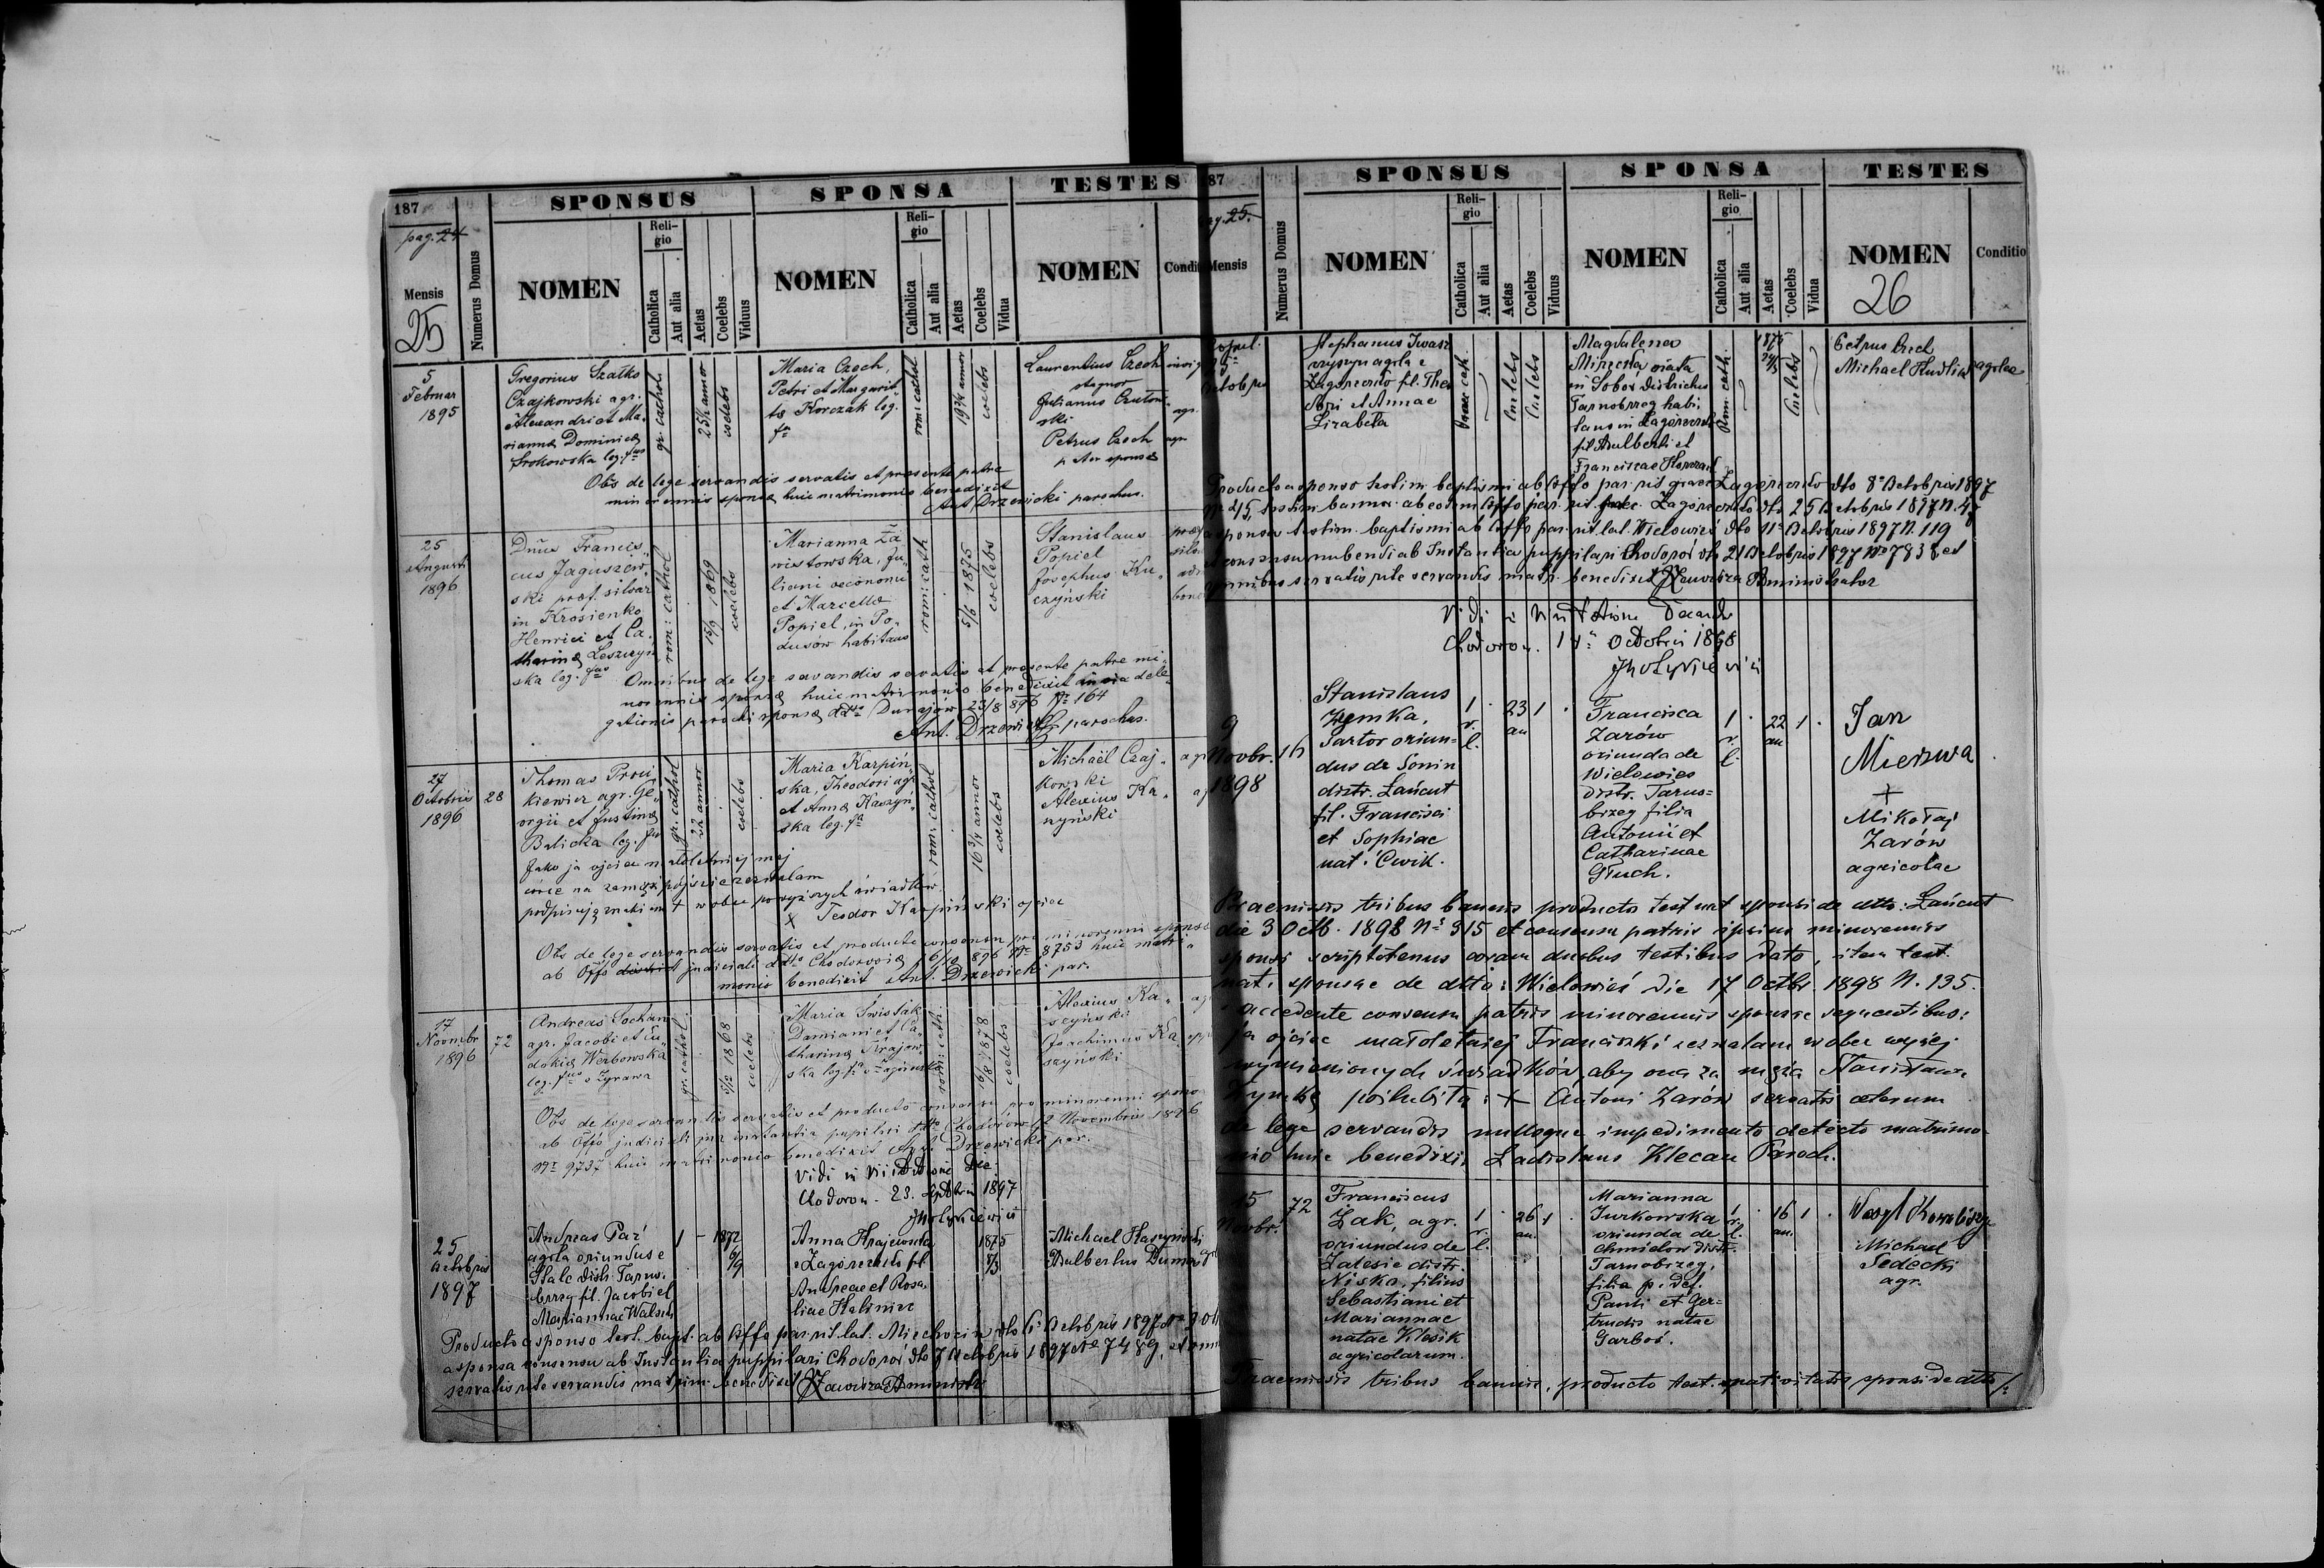 187
pag. 24
Mensis
25
Numerus Domus
SPONSUS
NOMEN
Reli-
gio
Catholica
Aut alia
Aetas
Coelebs
Viduus
SPONSA
NOMEN
Reli-
gio
Catholica
Aut alia
Aetas
Coelebs
Vidua
TESTES
NOMEN
5
Februar
1895
Gregorius Szatko
Czajkowski agr.
Alexandri et Ma,,
rianna Dominica
Srokowska leg. fus
gr. cathol.
25½ annor
coelebs
Maria Czech,
Petri et Margarit,,
ta Korczak leg.
fa
rom: cathol
19¾ annor
coelebs
Laurentius Czech
Julianus
ski
Petrus Czech agr.
pater sponsæ
Obs de lege servandis servatis et præsente patre
minorennis sponsæ huic matrimonio benedixit
Ant Drzewicki parochus.
25
Augusti
1896
Dnus Francis,,
cus Jaguszew,,
ski præf. silvar
in Krosienko
Henrici et Ca,,
tharinæ Leszczyń
ska leg. fus
rom: cathol
15/9 1869
coelebs
Marianna Za
wistowska, Ju,,
liani oeconomi
et Marcellæ
Popiel, in Po,,
dusów habitans
rom: cath
5/6 1875
coelebs
Stanislaus
Popiel
Josephus Ku,,
czyński
Omnibus de lege servandis servatis et præsente patre mi,,
norennis sponsæ huic matrimonio benedixit in via dele,,
gationis parochi sponsæ ddto Dunajów 23/8 896 No 164
Ant. Drzewicki parochus.
27
Octobris
1896
28
Thomas Proci
kiewicz agr. Ge,,
orgii et Justinæ
Balicka leg. fus
gr. cathol
22 annor
coelebs
Maria Karpiń,,
ska, Theodori agr.
et Annæ Kaszyń,,
ska leg. fa
rom: cathol
16¾ annor
coelebs
Michaël Czaj,,
kowski
Alexius Ka,,
szyński
Jako ja ojciec małoletniej mej
córce na zamęż pójście zezwalam
podpisuję znakiem + wobec powyższych świadków.
x Teodor Karpiński ojciec
Obs de lege servandis servatis et producto consensu pro minorenni sponsa
ab Offo judiciali ddto Chodoroviæ 16/10 896 No 8753 huic matri,,
monio benedixit Ant. Drzewicki par.
17
Novembr
1896
72
Andreas Sochan
agr. Jacobi et Eu,,
dokiæ Werbowska
leg. fus z Żyrawa
gr. cathol
5/12 1868
coelebs
Maria Swistak
Damiani et Ca,,
tharinæ Krajew,,
ska leg. fa
rom: cath.
16/8 1878
coelebs
Alexius Ka,,
szyński
Joachimus Ka
szyński
Obs de lege servandis servatis et producto consensu pro minorenni sponsa
ab Offo judiciali qua instantia pupilari ddto Chodorów 12 Novembris 1896
No 9737 huic matrimonio benedixit Ant. Drzewicki par.
Vidi in Visitatione Dec.
Chodorow. 23. Septbris 1897
25
Octobris
1897
Andreas Paź
agrla oriundus e
Stale distr. Tarno,
brzeg fil. Jacobi et
Mariannae Walsch
1
-
1872
6/9
Anna Krajewska
e Zagóreczko fil.
Andreae et Rosa,
liae Kaliniec
1875
8/3
Michael Kaszyński
Adalbertus Duma
Producto a sponso test. bapt. ab Offo par. rit. lat. Miechocin dto 6o Octobris 1897 No
a sponsa consensu ab Instantia puppilari Chodoroś dto 7 Octobris 1897 No 7489, et omn
servatis rite servandis matrim. benedixit Zawisza Administr
187
pag. 25.
Mensis
Numerus Domus
SPONSUS
NOMEN
Reli-
gio
Catholica
Aut alia
Aetas
Coelebs
Viduus
SPONSA
NOMEN
Reli-
gio
Catholica
Aut alia
Aetas
Coelebs
Vidua
TESTES
NOMEN
26
Conditio
Octobris
Stephanus Iwasz
czyszyn agrla e
Zagóreczko fil. Theo
dori et Annae
Lizabeta
Coelebs
Magdalena
Mierzwa nata
in Sobów districtus
Tarnobrzeg habi,
tans in Zagóreczko
fil. Adalberti et
Franciscae
Rom. cath.
1875
Coelebs
Petrus Czech
Michael Kudła agrlae
Producto a sponso testim. baptismi ab Offo par. rit. graec. Zagóreczko dto 8o Octobris 1897
No 45, testim. bannor. ab eodem Offo par. rit. graec. Zagóreczko dto 25 Octobris 1897 N. 47
a sponsa testim. baptismi ab Offo par. rit. lat. Wielowieś dto 11o Octobris 1897 N. 119
et consensu nubendi ab Instantia puppilari Chodoroś dto 21 Octobris 1897 No 7838, et
omnibus servatis rite servandis matr. benedixit Zawisza Administrator
Vidi in Visitatione Decanali
Chodorow. 18o Octobris 1898
9
Novbr.
1898
16
Stanislaus
Kemka,
sartor oriun=
dus de Sonin
distr. Łańcut
fil. Francisci
et Sophiae
nat. Ćwik.
1
r.
l.
23
an
1
Francisca
Zarów
oriunda de
Wielowies
distr. Tarno=
brzeg filia
Antonii et
Catharinae
Gruch.
1
r.
l.
22
an.
1
Jan
Mierzwa
+
Mikołaj
Zarów
agricolae
Praemissis tribus bannis producto test nat sponsi de dtto: Łańcut
die 3 Octb. 1898 No 315 et consensu patris ipsius minorennis
sponsi scriptotenus coram duobus testibus dato, item test.
nat. sponsae de dtto: Wielowieś die 17 Octbr. 1898 N. 135.
accedente consensu patris minorennis sponsae sequentibus:
ja ojciec małoletniej Franciszki zeznalam wobec wyżej
wymienionych świadków, aby ona za męża Stanisława
poślubiła: + Antoni Zarów servatis ceterum
de lege servandis nulloque impedimento detecto matrimo
nio huic benedixi, Ladislaus Klecan Paroch.
15
Novbr.
72
Franciscus
Żak, agr.
oriundus de
Zalesie distr.
Niska, filius
Sebastiani et
Mariannae
natae Klesik
agricolarum.
1
r.
l.
26
an.
1
Marianna
Jurkowska
oriunda de
Chmielow distr.
Tarnobrzeg,
filia p. def.
Pauli et Ger=
trudis natae
Garboś.
1
r.
l.
16
an.
1
Wasyl
Michael
Sedecki
agr.
Praemissis tribus bannis, producto test. nativitatis sponsi de dtto /: